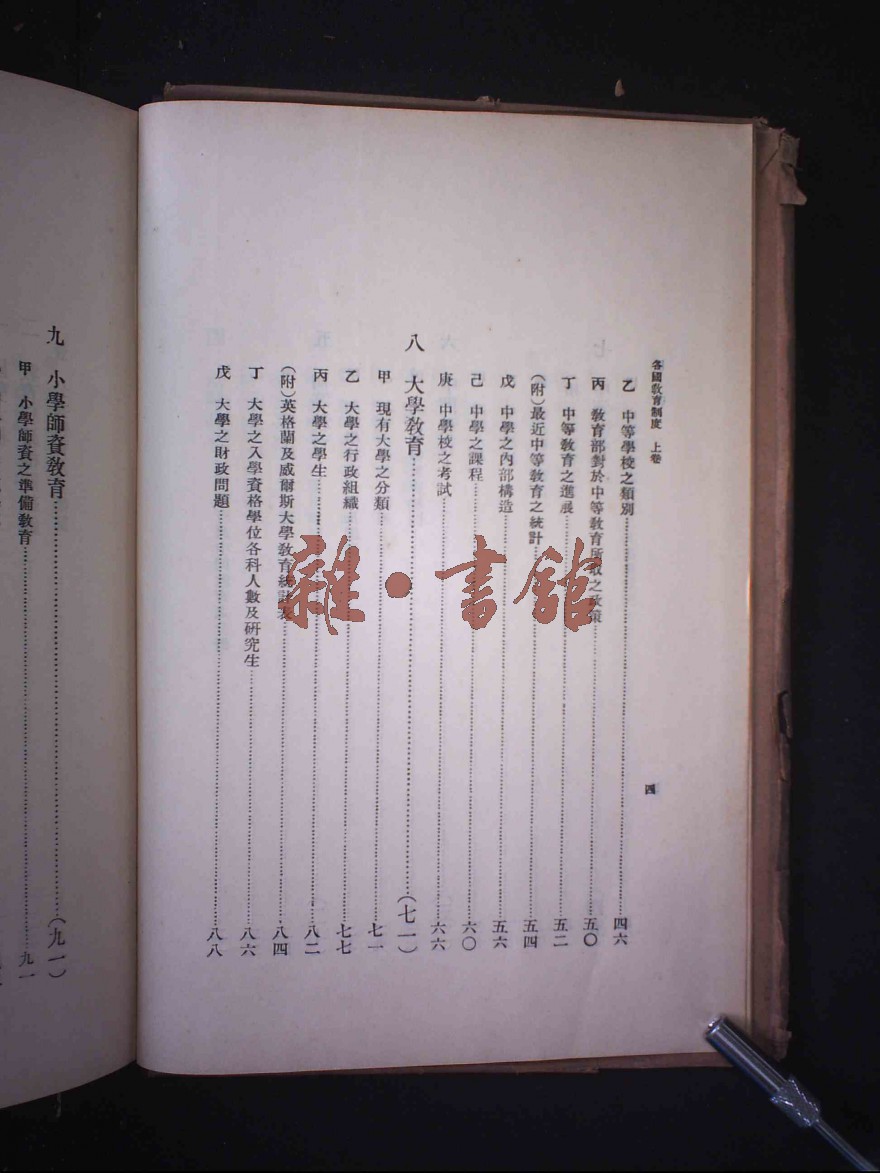 各國敎育制度 上卷
四
乙 中等學校之類別……四六
丙 敎育部對於中等敎育所取之政策……五〇
丁 中等敎育之進展……五二
(附)最近中等敎育之統計……五四
戊 中學之內部構造……五六
己 中學之課程……六〇
庚 中學校之考試……六六
八 大學敎育……(七一)
甲 現有大學之分類……七一
乙 大學之行政組織……七七
丙 大學之學生……八二
(附)英格蘭及威爾斯大學敎育統計表……八四
丁 大學之入學資格學位各科人數及硏究生……八六
戊 大學之財政問題……八八
九 小學師資敎育……(九一)
甲 小學師資之準備敎育……九一
雜·書館